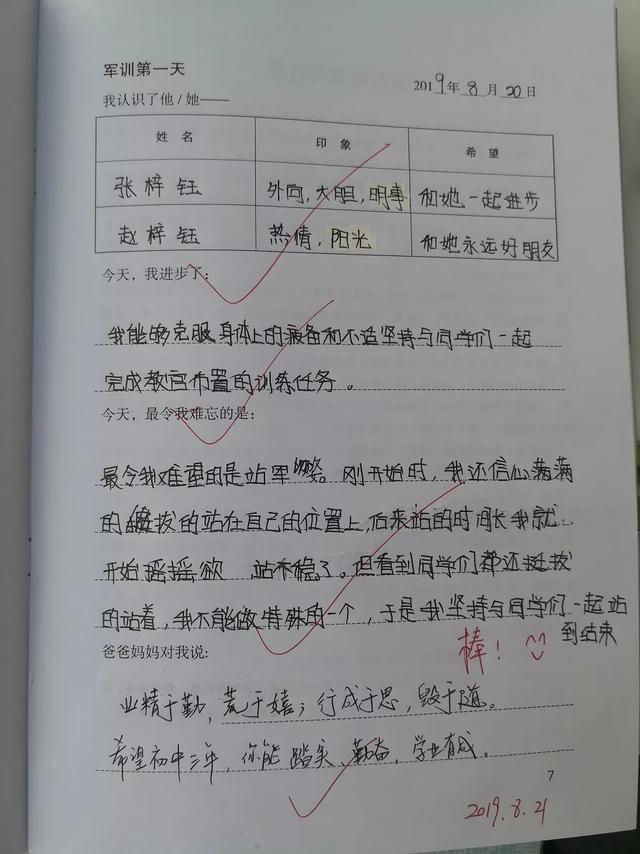 军训第一天
2019年8月20日
我认识了他/她——
姓名 印象 希望
张梓钰 外向,大胆,明事 和她一起进步
赵梓钰 热情,阳光 和她永远好朋友
今天,我进步了:
我能够克服身体上的疲备和不适坚持与同学们一起
完成教官布置的训练任务。
今天,最令我难忘的是:
最令我难望的是站军姿。刚开始时,我还信心满满
的挺拔的站在自己的位置上,后来站的时间长我就
开始摇摇欲 站不稳了。但看到同学们都还挺拔
的站着,我不能做特殊的一个,于是我坚持与同学们一起站
到结束
棒!
爸爸妈妈对我说:
业精于勤,荒于嬉;行成于思,毁于随。
希望初中三年,你能踏实、勤奋,学业有成。
7
2019.8.21